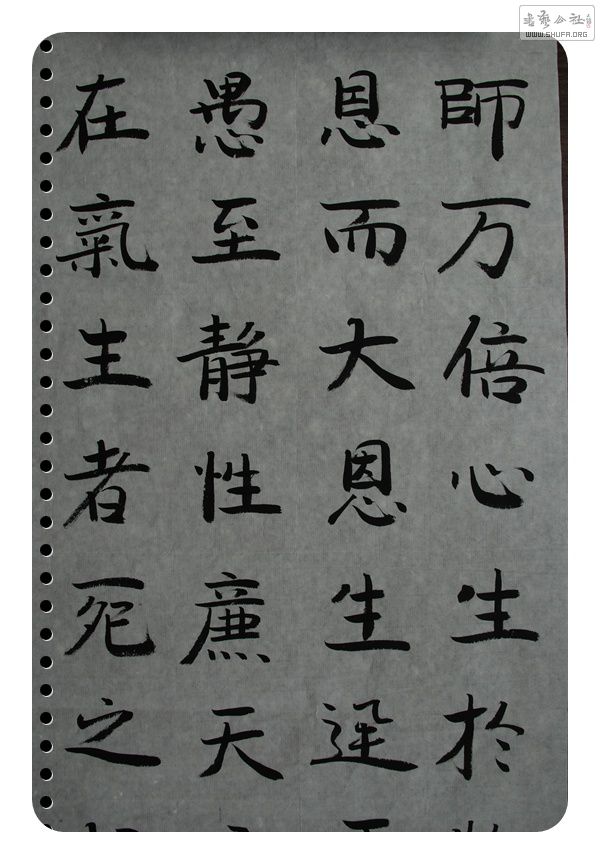 書藝公社
WWW.SHUFA.ORG
師万倍心生於
恩而大恩生迅
愚至靜性廉天
在氣生者死之